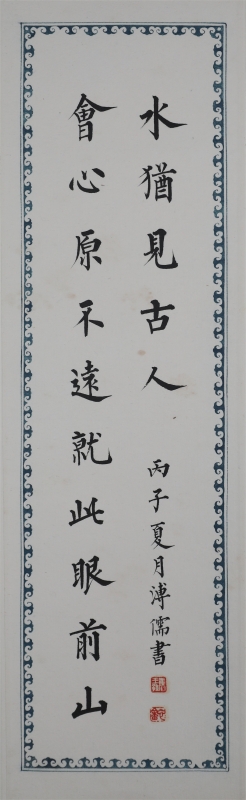 會心原不遠就此眼前山
水猶見古人
丙子夏月溥儒書